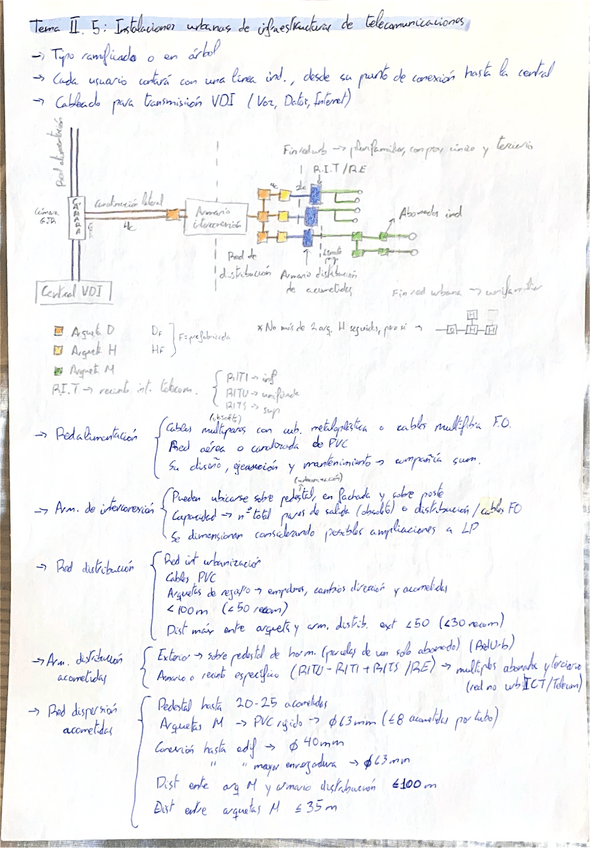 Tema II.5: Instalaciones urbanas de infraestructuras de telecomunicaciones
→ Tipo ramificado o en árbol
→ Cada usuario contará con una línea ind., desde su punto de conexión hasta la central
→ Cableado para transmisión VDI (Voz, Datos, Internet)
Red alimentación
Fin red urb → plurifamiliar, complejo, único y terciario
R.I.T/RE
Canalización lateral
CÁMARA
4c
Armario interconexión
Abonados ind
Red de distribución
Armario distribución de acometidas
Central VDI
Fin red urbana → unifamiliar
Arqueta D DF
Arqueta H HF
F = prefabricada
* No más de 2 arq. H seguidas, para sí →
Arqueta M
R.I.T → recinto int. telecom.
RITI → inf
RITU → unificado
RITS → sup
→ Red alimentación
(obsoleto)
Cables multipares con cub. metaloplástica o cables multifibra F.O.
Red aérea o canalizada de PVC
Su diseño, ejecución y mantenimiento → compañía sum.
→ Arm. de interconexión
Pueden ubicarse sobre pedestal, en fachada y sobre poste
Capacidad → nº total pares de salida (obsoleto) o distribución / cables FO
Se dimensionan considerando posibles ampliaciones a LP
→ Red distribución
Red int urbanización
Cables PVC
Arquetas de registro → empalmes, cambios dirección y acometidas
<100m (<50 recom)
Dist máx entre arqueta y arm. distrib. ext <50 (≤30 recom)
→ Arm. distribución acometidas
Exterior → sobre pedestal de horm. (parcelas de un solo abonado) (Red Urb)
Armario o recinto específico (RITU - RITI + RITS / RE) → múltiples abonados y terciario
(red no urb ICT/Telecom)
→ Red dispersión acometidas
Pedestal hasta 20-25 acometidas
Arquetas M → PVC rígido → φ63mm (≤8 acometidas por tubo)
Conexión hasta edif → φ40mm
" " mayor envergadura → φ63mm
Dist entre arq M y armario distribución ≤100m
Dist entre arquetas M ≤35m